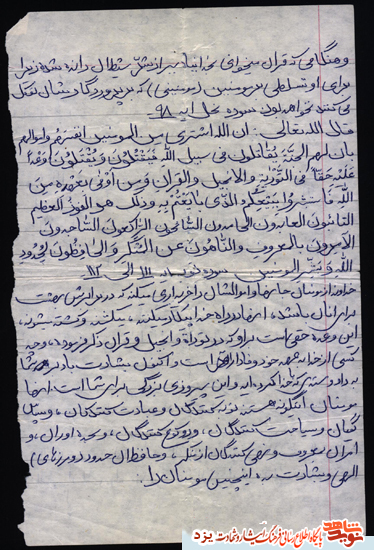 و هنگامی که قرآن میخوانی بخدا پناه ببر از شر شیطان رانده شده زیرا
برای او تسلطی بر مومنین (مومنینی) که بر پروردگارشان توکل
می کنند نخواهد بود سوره نحل آیه ۹۸
قال الله تعالی: ان الله اشتری من المومنین انفسهم و اموالهم
بان لهم الجنة یقاتلون فی سبیل الله فیقتلون و یقتلون وعدا
علیه حقا فی التوریة و الانجیل و القران و من اوفی بعهده من
الله فاستبشروا ببیعکم الذی بایعتم به و ذلک هو الفوز العظیم
التائبون العابدون الحامدون السائحون الراکعون الساجدون
الآمرون بالمعروف و الناهون عن المنکر و الحافظون لحدود
الله و بشر المومنین سوره توبه آیه ۱۱۱ الی ۱۱۲
خداوند از مومنان جانها و اموالشان را خریداری میکند که در برابرش بهشت
برای آنان باشد، آنها در راه خدا پیکار میکنند، میکشند و کشته میشوند،
این وعده حقی است بر او که در تورات و انجیل و قرآن ذکر فرموده، و چه
کسی از خدا به عهد خود وفادارتر است و اکنون بشارت باد بر شما
به داد و ستدی که با خدا کرده اید و این پیروزی بزرگی برای شما است، آنها
مومنان اینگونه هستند توبه کنندگان و عبادت کنندگان، و سپاس
گویان و سیاحت کنندگان، و رکوع کنندگان، و سجده آوران، و
آمران بمعروف و نهی کنندگان از منکر، و حافظان حدود (و مرزهای)
الهی و بشارت بده اینچنین مومنان را.
شاهد
نوید
پایگاه اطلاع رسانی فرهنگ ایثار و شهادت یزد